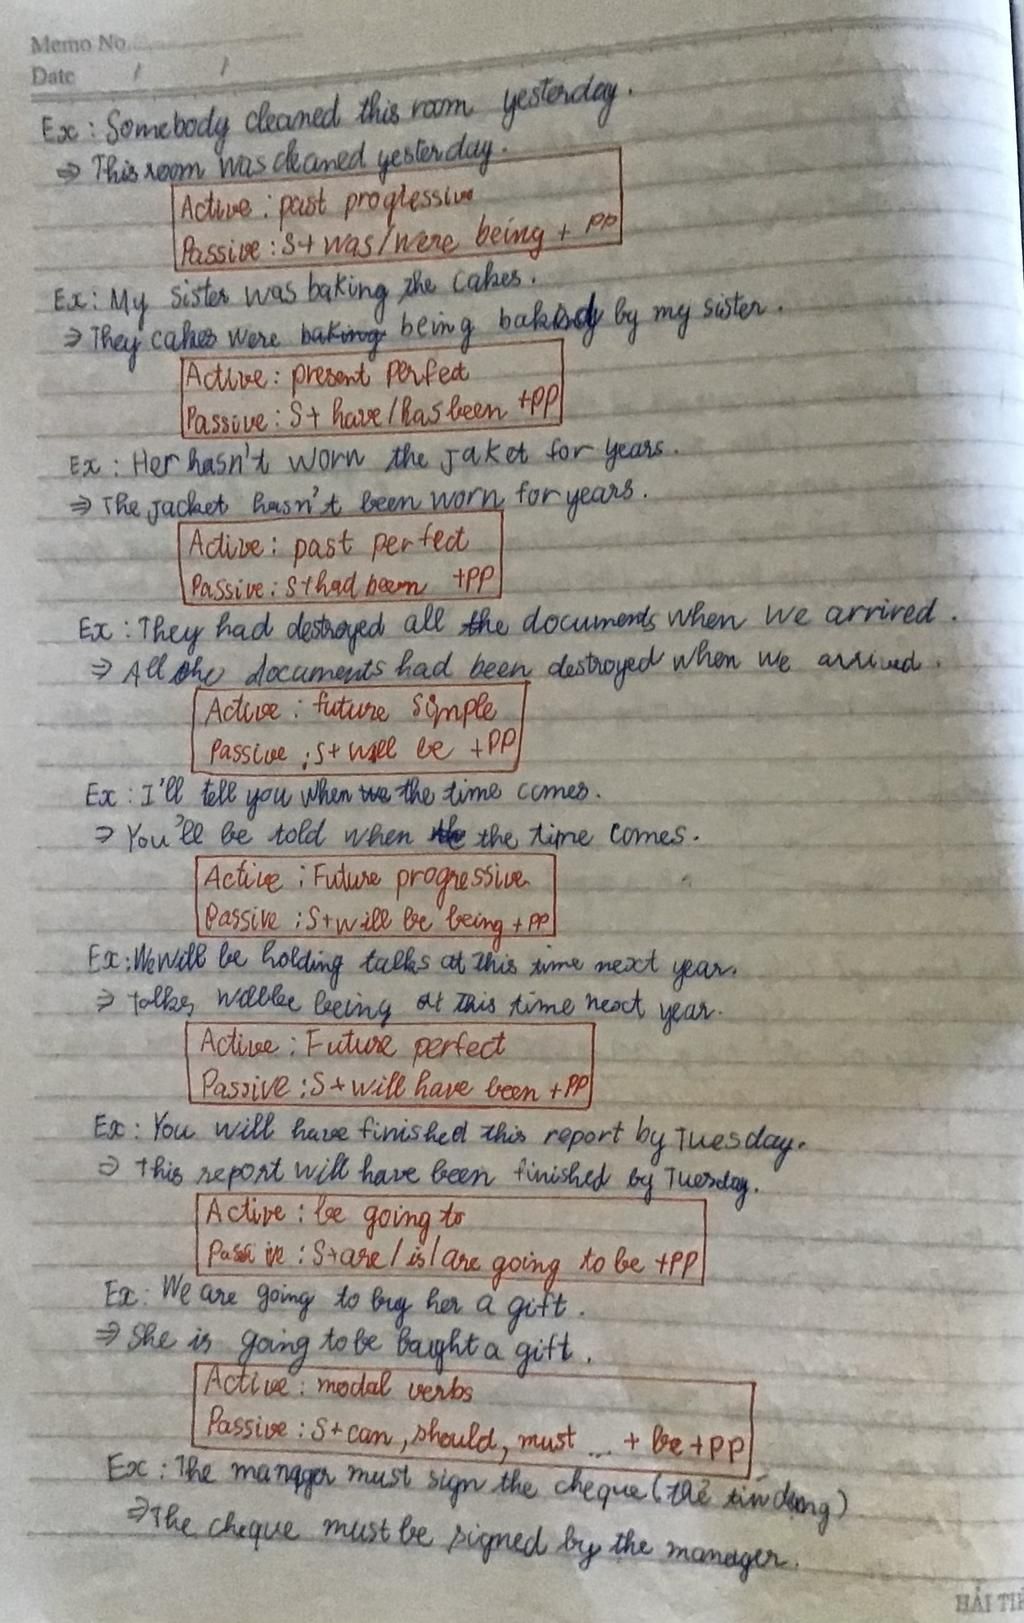 Memo No.
Date / /
Ex : Somebody cleaned this room yesterday.
⇒ This room was cleaned yesterday.
Active : past proglessive
Passive : S+ was/were being + PP
Ex : My sister was baking the cakes.
⇒ They cakes were being by my sister.
Active : present perfect
Passive : S+ have/has been +PP
Ex : Her hasn't worn the jaket for years.
⇒ The jacket hasn't been worn for years.
Active : past perfect
Passive : S+had been +PP
Ex : They had destroyed all the documents when we arrived.
⇒ All the documents had been destroyed when we arrived.
Active : future simple
Passive : S+ will be +PP
Ex : I'll tell you when the time comes.
⇒ You'll be told when the time comes.
Active : Future progressive
Passive : S+will be being + PP
Ex : We will be holding talks at this time next year.
⇒ Talks will be being at this time next year.
Active : Future perfect
Passive : S+will have been +PP
Ex : You will have finished this report by Tuesday.
⇒ This report will have been finished by Tuesday.
Active : be going to
Passive : S+are/is/are going to be +PP
Ex : We are going to buy her a gift.
⇒ She is going to be baught a gift.
Active : modal verbs
Passive : S+can, should, must ... + be +PP
Ex : The manager must sign the cheque (thẻ tín dụng)
⇒ The cheque must be signed by the manager.
HẢI